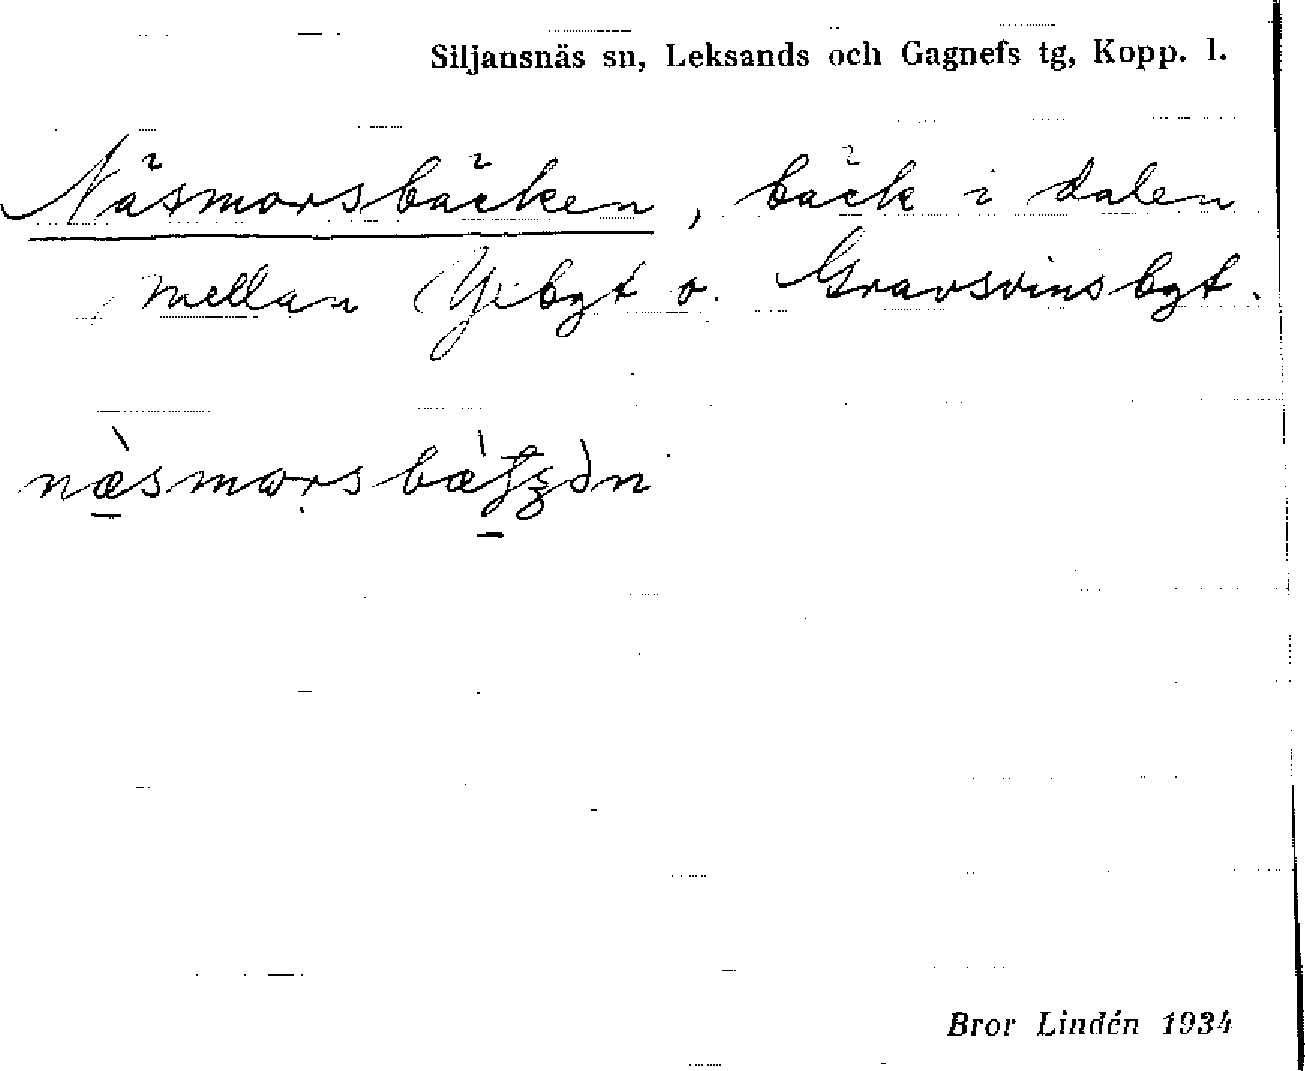 Siljansnäs sn, Leksands och Gagnefs tg, Kopp. l.
Näsmorsbäcken, bäck i dalen
mellan Yxbgt o. Gravsvinsbgt.
Bror Lindén 1934